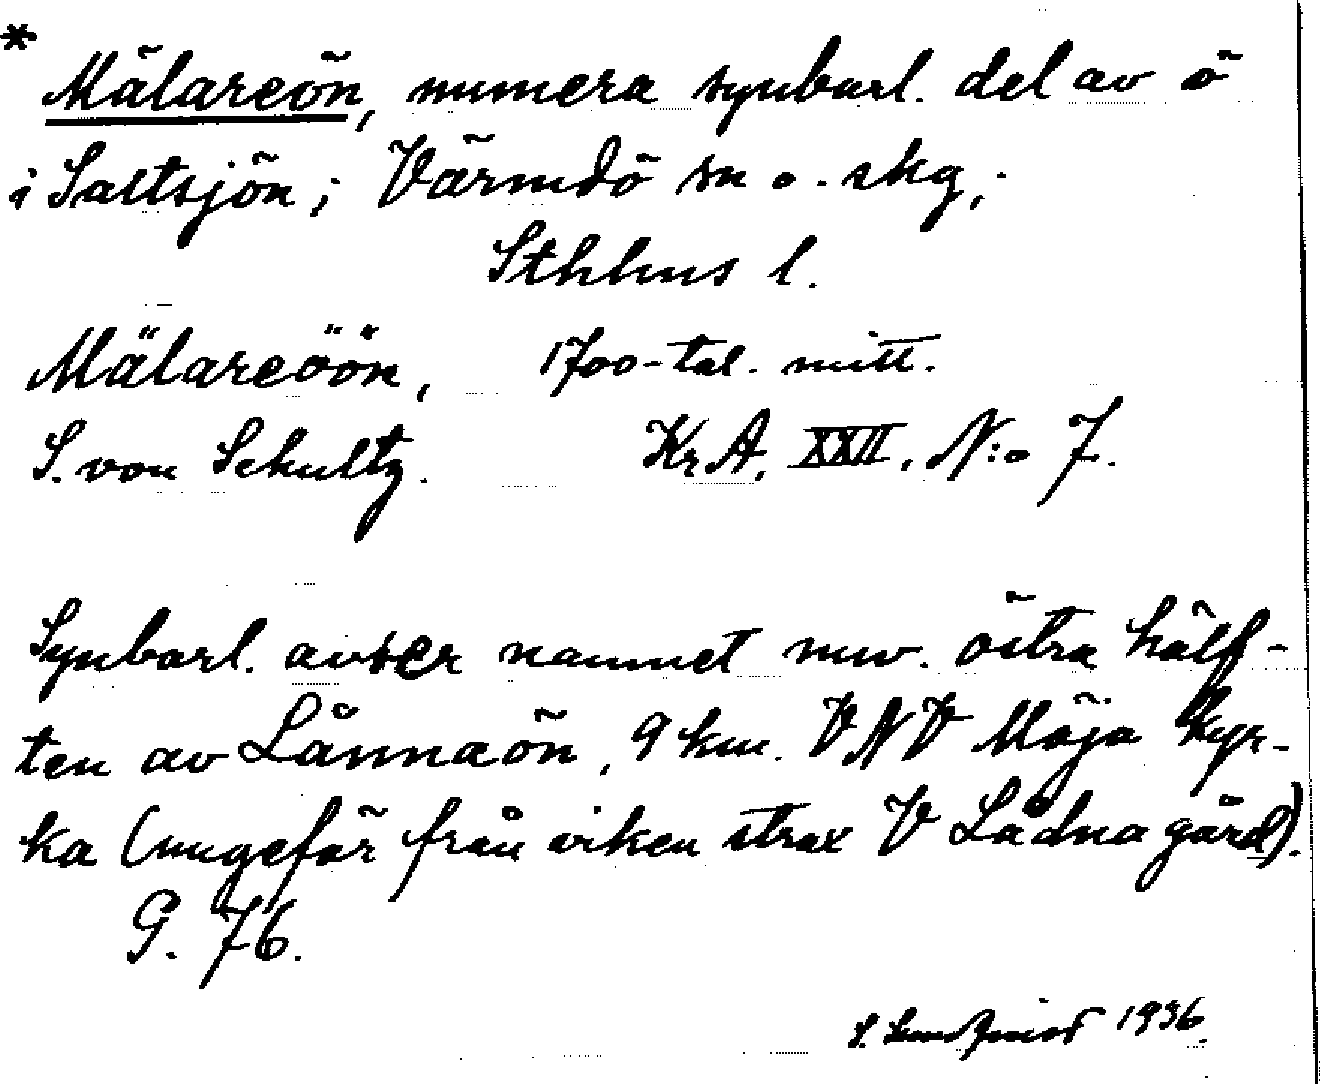 * Mälareön, numera synbarl. del av ö
i Saltsjön; Värmdö sn o. skg,
Sthlms l.
Mälareöön, 1700-tal. mitt.
S. von Schultz. KrA, XXII, N:o 7.
Synbarl. avser namnet nuv. östra hälf-
ten av Lånnaön, 9 km. VNV Möja kyr-
ka (ungefär från viken strax V Lådna gård).
G. 76.
S. Lundqvist 1936.